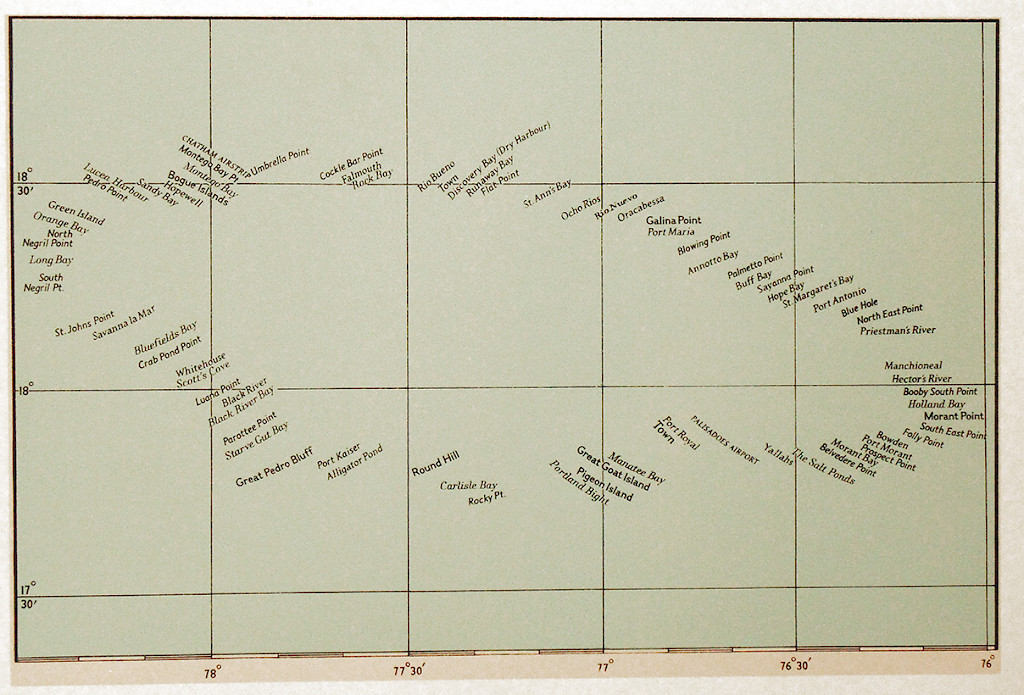 CHATHAM AIRSTRIP
Montego Bay Pt.
Montego Bay
Bogue Islands
Hopewell
Sandy Bay
Lucea Harbour
Pedro Point
Umbrella Point
Cockle Bar Point
Falmouth
Rock Bay
Rio Bueno
Town
Discovery Bay (Dry Harbour)
Runaway Bay
Flat Point
St. Ann's Bay
Ocho Rios
Rio Nuevo
Oracabessa
Galina Point
Port Maria
Blowing Point
Annotto Bay
Palmetto Point
Buff Bay
Savanna Point
Hope Bay
St. Margaret's Bay
Port Antonio
Blue Hole
North East Point
Priestman's River
Manchioneal
Hector's River
Booby South Point
Holland Bay
Morant Point
South East Point
Folly Point
Bowden
Port Morant
Prospect Point
Morant Bay
Belvedere Point
The Salt Ponds
Yallahs
PALISADOES AIRPORT
Port Royal
Town
Manatee Bay
Great Goat Island
Pigeon Island
Portland Bight
Rocky Pt.
Carlisle Bay
Round Hill
Alligator Pond
Port Kaiser
Great Pedro Bluff
Starve Gut Bay
Parottee Point
Black River Bay
Black River
Luana Point
Scott's Cove
Whitehouse
Crab Pond Point
Bluefields Bay
Savanna la Mar
St. Johns Point
South
Negril Pt.
Long Bay
North
Negril Point
Orange Bay
Green Island
18°
30′
18°
17°
30′
78°
77°30′
77°
76°30′
76°